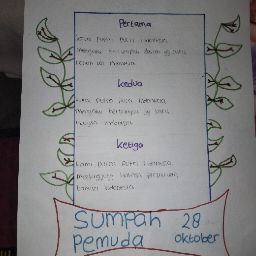 Pertama
Kami Putra Putri Indonesia,
Mengaku bertumpah darah yg satu,
tanah air Indonesia
Kedua
Kami Putra Putri Indonesia,
Mengaku berbangsa yg satu,
bangsa Indonesia
Ketiga
Kami Putra Putri Indonesia,
Menjunjung bahasa persatuan,
bahasa Indonesia
Sumpah 28
pemuda oktober